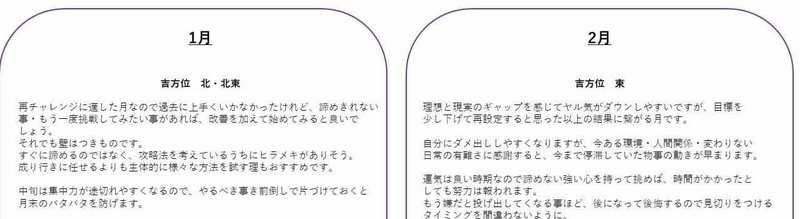 1月
吉方位　北・北東
再チャレンジに適した月なので過去に上手くいかなかったけれど、諦めきれない
事・もう一度挑戦してみたい事があれば、改善を加えて始めてみると良いで
しょう。
それでも壁はつきものです。
すぐに諦めるのではなく、攻略法を考えているうちにヒラメキがありそう。
成り行きに任せるよりも主体的に様々な方法を試す理もおすすめです。
中旬は集中力が途切れやすくなるので、やるべき事き前倒しで片づけておくと
月末のバタバタを防げます。
2月
吉方位　東
理想と現実のギャップを感じてヤル気がダウンしやすいですが、目標を
少し下げて再設定すると思った以上の結果に繋がる月です。
自分にダメ出ししやすくなりますが、今ある環境・人間関係・変わりない
日常の有難さに感謝すると、今まで停滞していた物事の動きが早まります。
運気は良い時期なので諦めない強い心を持って挑めば、時間がかかったと
しても努力は報われます。
もう嫌だと投げ出してくなる事ほど、後になって後悔するので見切りをつける
タイミングを間違わないように。